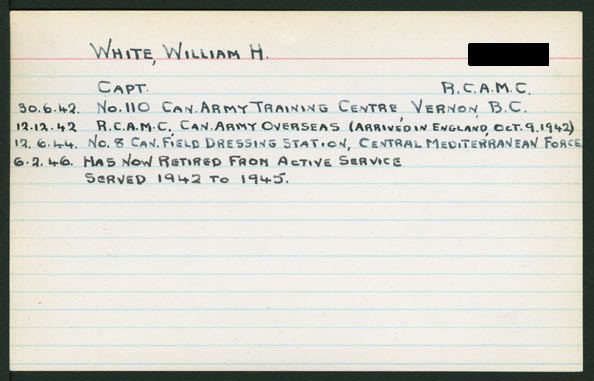 WHITE, WILLIAM H.
CAPT. R.C.A.M.C.
30.6.42. No.110 CAN. ARMY TRAINING CENTRE, VERNON, B.C.
12.12.42 R.C.A.M.C., CAN. ARMY OVERSEAS (ARRIVED IN ENGLAND, OCT. 9. 1942)
12.6.44. No. 8 CAN. FIELD DRESSING STATION, CENTRAL MEDITERRANEAN FORCE
6.2.46. HAS NOW RETIRED FROM ACTIVE SERVICE
SERVED 1942 TO 1945.